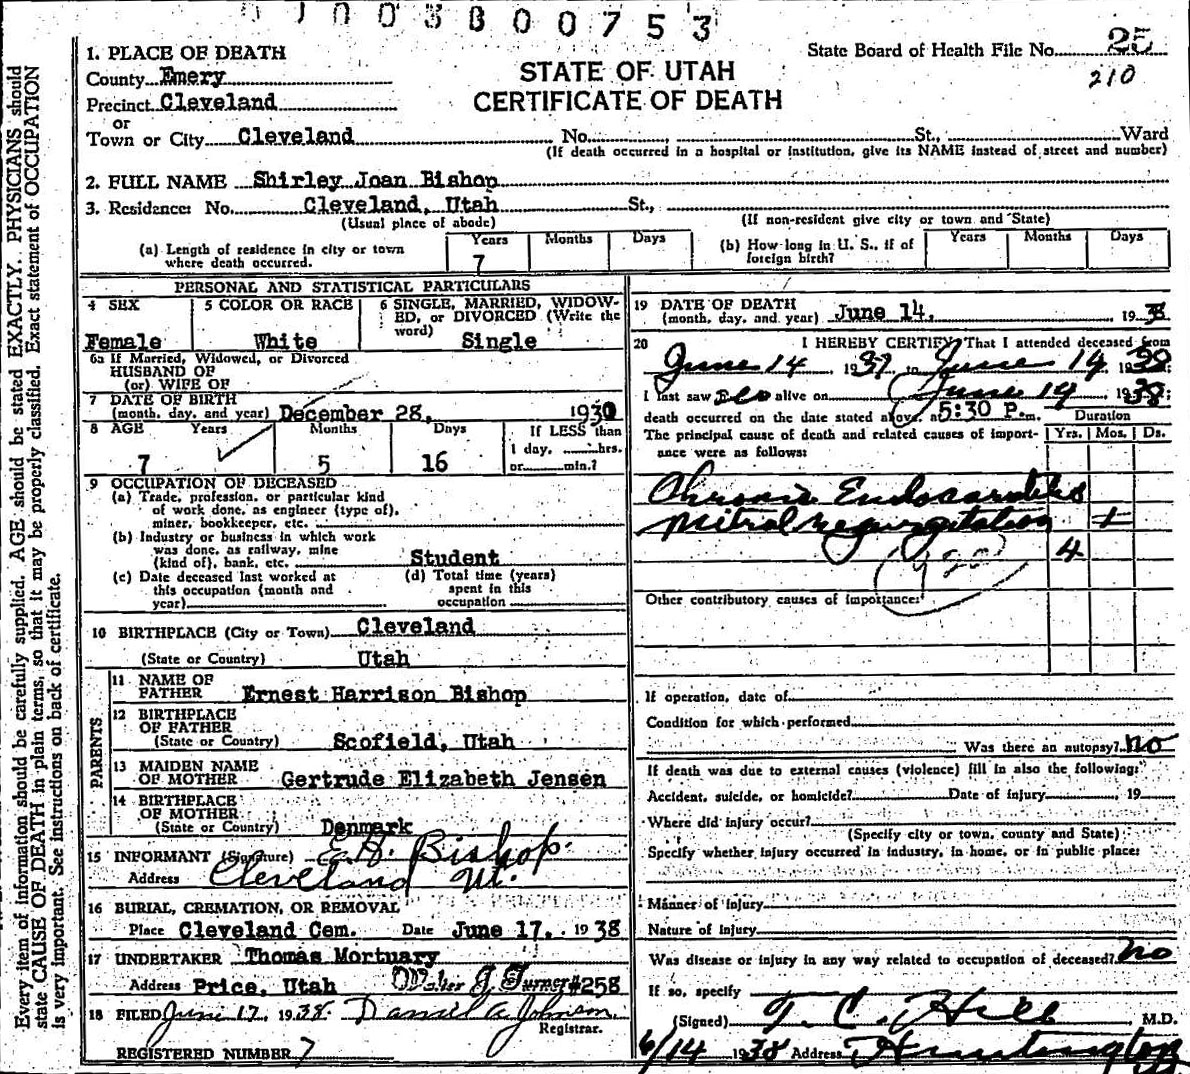 003800753
State Board of Health File No. 25
210
STATE OF UTAH
CERTIFICATE OF DEATH
1. PLACE OF DEATH
County Emery
Precinct Cleveland
or
Town or City Cleveland No. St., Ward
(If death occurred in a hospital or institution, give its NAME instead of street and number)
2. FULL NAME Shirley Joan Bishop
3. Residence: No. Cleveland, Utah St.,
(Usual place of abode) (If non-resident give city or town and State)
(a) Length of residence in city or town where death occurred. Years 7 Months Days
(b) How long in U. S., if of foreign birth? Years Months Days
PERSONAL AND STATISTICAL PARTICULARS
4 SEX Female
5 COLOR OR RACE White
6 SINGLE, MARRIED, WIDOW-
ED, or DIVORCED (Write the
word) Single
6a If Married, Widowed, or Divorced
HUSBAND OF
(or) WIFE OF
7 DATE OF BIRTH
(month, day, and year) December 28, 1930
8 AGE Years Months Days If LESS than
1 day, hrs.
7 5 16 or min.?
9 OCCUPATION OF DECEASED
(a) Trade, profession, or particular kind
of work done, as engineer (type of),
miner, bookkeeper, etc.
(b) Industry or business in which work
was done, as railway, mine
(kind of), bank, etc. Student
(c) Date deceased last worked at
this occupation (month and
year)
(d) Total time (years)
spent in this
occupation
10 BIRTHPLACE (City or Town) Cleveland
(State or Country) Utah
PARENTS
11 NAME OF
FATHER Ernest Harrison Bishop
12 BIRTHPLACE
OF FATHER
(State or Country) Scofield, Utah
13 MAIDEN NAME
OF MOTHER Gertrude Elizabeth Jensen
14 BIRTHPLACE
OF MOTHER
(State or Country) Denmark
15 INFORMANT (Signature) E.H. Bishop
Address Cleveland Ut.
16 BURIAL, CREMATION, OR REMOVAL
Place Cleveland Cem. Date June 17, 1938
17 UNDERTAKER Thomas Mortuary
Address Price, Utah J. Turner #258
18 FILED June 17, 1938 Daniel A Johnson
Registrar.
REGISTERED NUMBER 7
19 DATE OF DEATH
(month, day, and year) June 14, 1938
20 I HEREBY CERTIFY, That I attended deceased from
June 14, 1937 to June 14, 1938
I last saw her alive on June 14, 1938;
death occurred on the date stated above, at 5:30 P.m.
The principal cause of death and related causes of import-
ance were as follows:
Duration
Yrs. Mos. Ds.
Chronic Endocarditis
Mitral regurgitation +
4
Other contributory causes of importance:
If operation, date of
Condition for which performed
Was there an autopsy? no
If death was due to external causes (violence) fill in also the following:
Accident, suicide, or homicide? Date of injury , 19
Where did injury occur?
(Specify city or town, county and State)
Specify whether injury occurred in industry, in home, or in public place:
Manner of injury
Nature of injury
Was disease or injury in any way related to occupation of deceased? no
If so, specify
(Signed) T. C. Hill M.D.
6/14 1938 Address Huntington
Every item of information should be carefully supplied. AGE should be stated EXACTLY. PHYSICIANS should
state CAUSE OF DEATH in plain terms, so that it may be properly classified. Exact statement of OCCUPATION
is very important. See instructions on back of certificate.